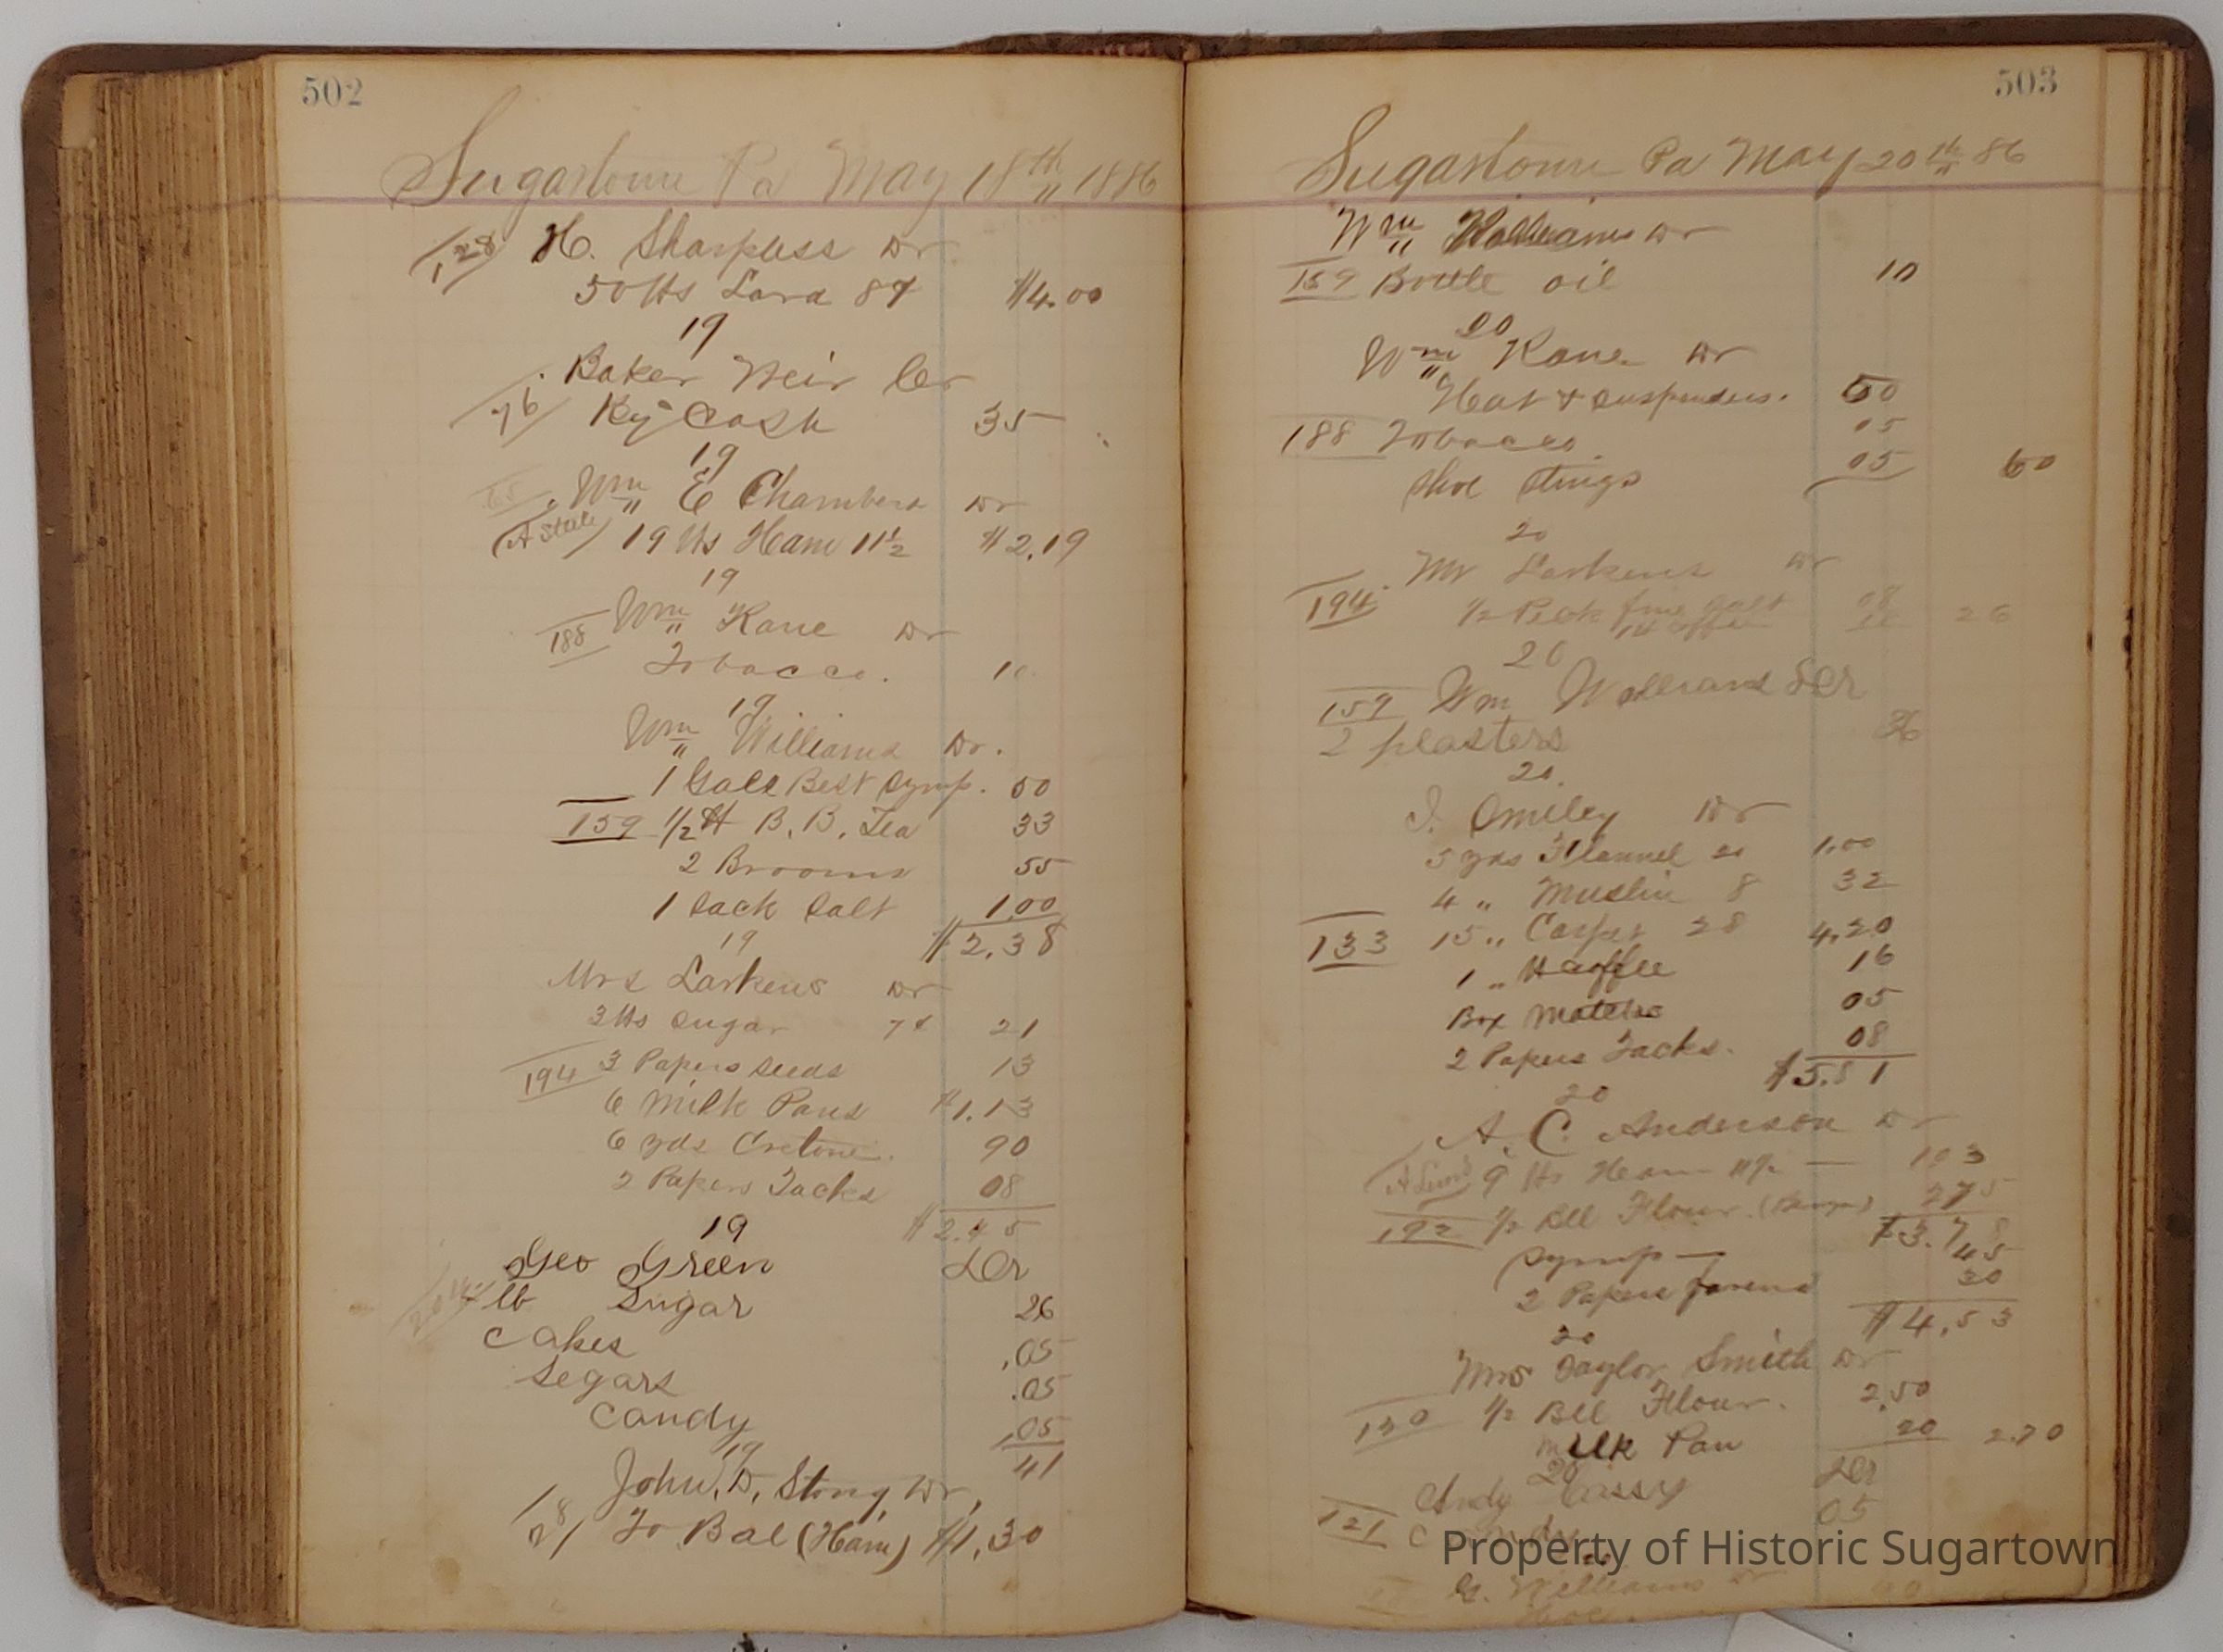 502
Sugartown Pa May 18th 1886
128 H. Sharpless Dr
50 lbs Lard 8¢ $4.00
19
Baker Weir Cr
76 By Cash 35
19
65 Wm E Chambers Dr
19 lbs Ham 11½ $2.19
19
Wm Kane Dr
188
Tobacco. 10
19
Wm Williams Dr.
1 Gall Best Syrup. 50
159 1/2 lb B. B. Tea 33
2 Brooms 55
1 Sack Salt 1.00
$2.38
19
Mrs Larkens Dr
3 lbs Sugar 7¢ 21
194 3 Papers Seeds 13
6 Milk Pans $1.13
6 yds Cretone. 90
2 Papers Tacks 08
$2.45
19
Geo Green Dr
lb Sugar 26
Cakes ,05
Segars .05
Candy ,05
41
19
John, D, Stong Dr,
28 To Bal (Ham) $1,30
503
Sugartown Pa May 20th 86
Wm Williams Dr
159 Bottle oil 10
20
Wm Kane Dr
Hat & suspenders. 50
188 Tobacco. 05
Shoe Stings 05 60
20
Mr Larkens Dr
194 1/2 Peck fine Salt 08
26
20
159 Wm Williams Dr
2 plasters 26
20.
I. Smiley Dr
5 yds Flannel 20 1.00
4 " Muslin 8 32
133 15 " Carpet 28 4.20
1 " lb Coffee 16
Box Matches 05
2 Papers Tacks. 08
$5.81
20
A. C. Anderson Dr
9 lbs Ham 11½ — 103
192 1/2 Bll Flour. 275
$3.78
Syrup — 45
2 Papers 30
$4,53
20
Mrs Taylor Smith Dr
130 1/2 Bll Flour. 2,50
milk Pan 20 2.70
20
Andy Cassy Dr
121 Candy 05
20
G. Williams Dr
Property of Historic Sugartown